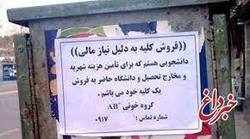 ((فروش کلیه به دلیل نیاز مالی))
دانشجویی هستم که برای تامین هزینه شهریه
و مخارج تحصیل و دانشگاه حاضر به فروش
یک کلیه خود می باشم.
گروه خونی AB⁻
شماره تماس : ۰۹۱۷
خبرداغ